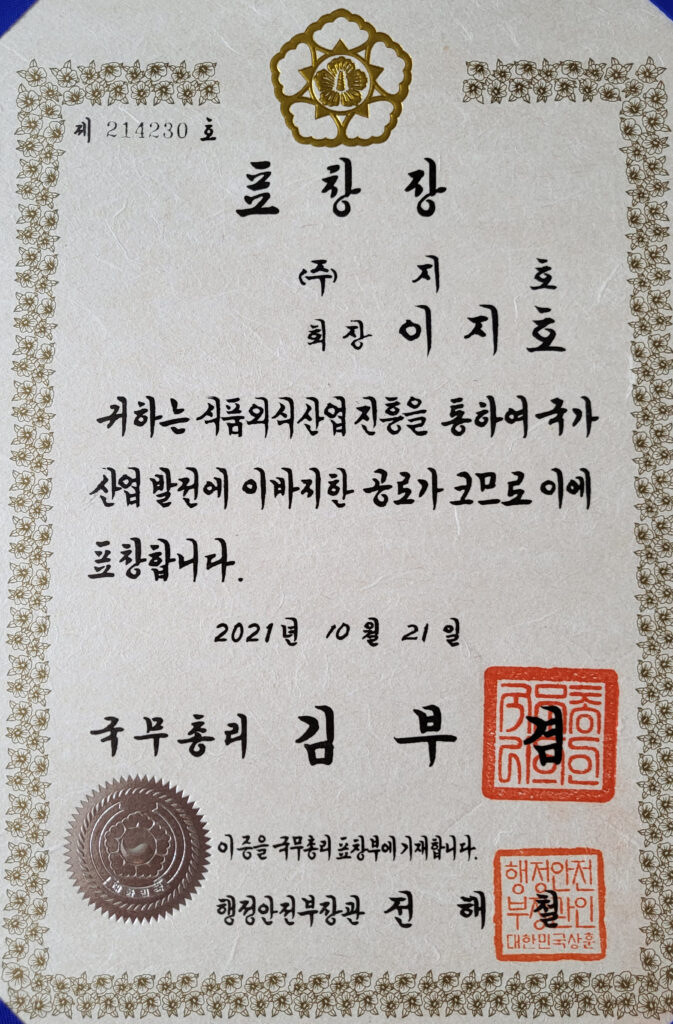 제 214230 호
표 창 장
(주) 지 호
회 장 이 지 호
귀하는 식품외식산업 진흥을 통하여 국가
산업 발전에 이바지한 공로가 크므로 이에
표창합니다.
2021년 10월 21일
국무총리 김 부 겸
이 증을 국무총리 표창부에 기재합니다.
행정안전부장관 전 해 철
행정안전
부장관인
대한민국상훈